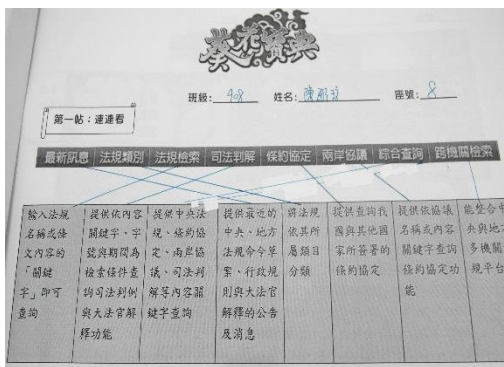 葵花寶典
班級: 408 姓名: 陳 座號: 8
第一帖：連連看
最新訊息 法規類別 法規檢索 司法判解 條約協定 兩岸協議 綜合查詢 跨機關檢索
輸入法規
名稱或條
文內容的
「關鍵
字」即可
查詢
提供依內容
關鍵字、字
號與期間為
檢索條件查
詢司法判例
與大法官解
釋功能
提供中央法
規、條約協
定、兩岸協
議、司法判
解等內容關
鍵字查詢
提供最近的
中央、地方
法規命令草
案、行政規
則與大法官
解釋的公告
及消息
將法規
依其所
屬類目
分類
提供查詢我
國與其他國
家所簽署的
條約協定
提供依協議
名稱或內容
關鍵字查詢
條約協定功
能
能整合中
央與地方
多機關
規平台